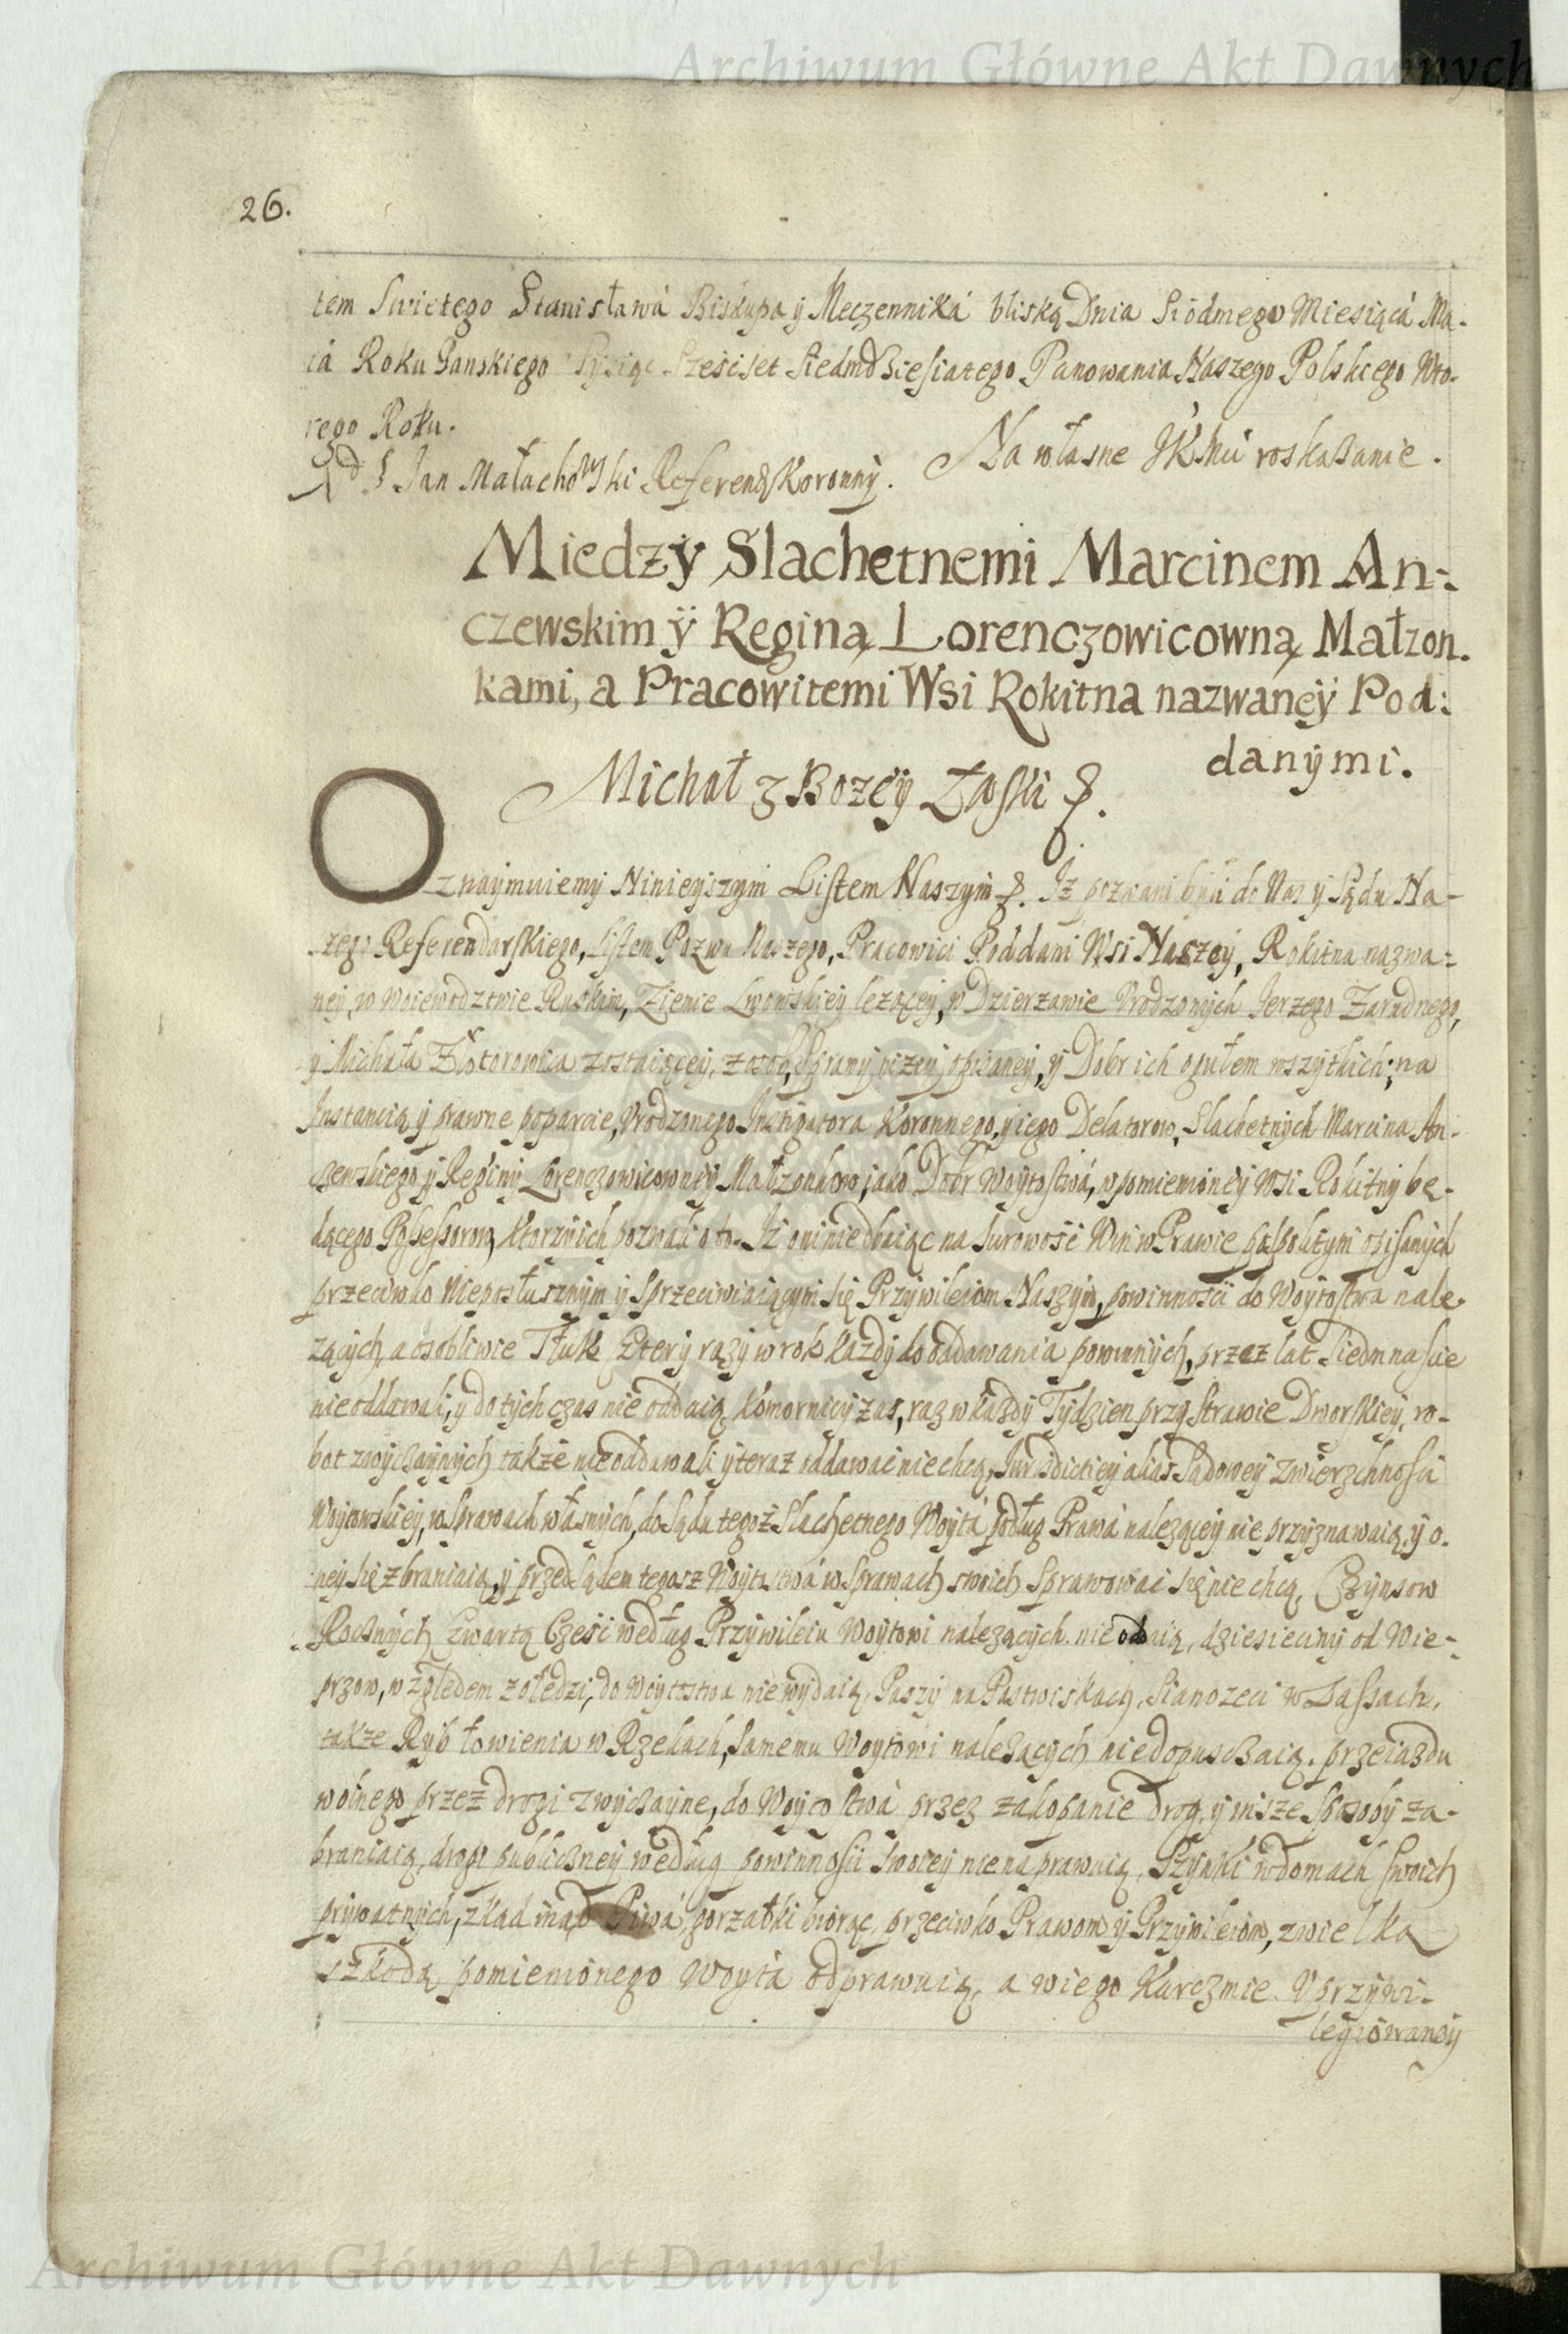 Archiwum Główne Akt Dawnych
26.
tem Swietego Stanisława Biskupa ÿ Męczennika bliską Dnia Siodmego Miesiąca Ma-
ia Roku Panskiego Tysiąc Szescset Siedmdziesiatego Panowania Naszego Polskiego Wto-
rego Roku.
Na własne JKMci roskazanie.
Jan Małachowski Referend. Koronnÿ.
Miedzÿ Slachetnemi Marcinem An-
czewskim ÿ Reginą Lorenczowicowną Małzon.
kami, a Pracowitemi Wsi Rokitna nazwanéÿ Pod:
danÿmi.
Michał z Bozéÿ Łaski
Oznaÿmuiemÿ Ninieÿszÿm Listem Naszÿm. Iż pozwani bÿli do Nas ÿ Sądu Na-
szego Referendarskiego, listem Pozwu Naszego, Pracowici Poddani Wsi Naszeÿ, Rokitna nazwa-
neÿ, w Woiewodztwie Ruskim, Ziemie Lwowskieÿ lezącéÿ, w Dzierzawie Urodzonÿch Jerzego Zarudnego,
ÿ Michała Złotorowica zostaiąceÿ, z osob, Spranÿ nizeÿ opisaneÿ, ÿ Dobr ich ogułem wszÿtkich; na
Instancią ÿ prawne poparcie, Urodzonego Instigatora Koronnego, ÿ iego Delatorow, Slachetnÿch Marcina An-
czewskiego ÿ Reginÿ Lorenczowicownéÿ Małzonkow, iako Dobr Woÿtostwa, w pomienionéÿ Wsi Rokitnÿ bę-
dącego Possessorow, ktorzÿ ich pozwali o to. Iż oni niedbaiąc na surowość Win w Prawie pospolitÿm opisanÿch
przeciwko Nieposłusznÿm ÿ Sprzeciwiaiącÿm się Przÿwileiom Naszÿm, powinności do Woÿtostwa nale-
zącÿch, a osobliwie Tłuk czterÿ razÿ w rok kazdÿ do oddawania powinnÿch, przez lat siedmnascie
nieoddawali, ÿ do tÿch czas nie oddaią, Komornicÿ zas, raz w kazdÿ Tÿdzien przÿ strawie Dworskieÿ, ro-
bot zwÿczaÿnÿch także nieoddawali ÿ teraz oddawać nie chcą, Jurisdictieÿ alias Sądoweÿ Zwierzchności
Woÿtowskieÿ, w Sprawach własnÿch, do Sądu tegoż Slachetnego Woÿta podług Prawa nalezącéÿ nie przÿznawaią, ÿ o-
neÿ się zbraniaią, ÿ przed Sądem tegosz Woÿtostwa w Sprawach swoich Sprawować się nie chcą, Czÿnsow
Rocznÿch Czwartą Część według Przÿwileiu Woÿtowi nalezącÿch nie oddaią, dziesiecinÿ od Wie-
przow, względem zołedzi, do Woÿtostwa nie wÿdaią, Paszÿ na Pastwiskach, Sianozeci w Lassach,
także Rÿb łowienia w Rzekach, samemu Woÿtowi nalezącÿch niedopusczaią, przeiazdu
wolnego przez drogi zwÿczaÿne, do Woÿtostwa przez zakopanie drog, ÿ insze sposobÿ za-
braniaią, drogi publiczneÿ według powinności swoieÿ nie naprawuią, Szÿnki w domach swoich
prÿwatnÿch, z kąd inąd Piwa, gorzałki biorąc, przeciwko Prawom ÿ Przÿwileiom, z wielką
szkodą pomienionego Woÿta odprawuią, a w iego Karczmie Uprzÿwi-
legiowaneÿ
Archiwum Główne Akt Dawnych